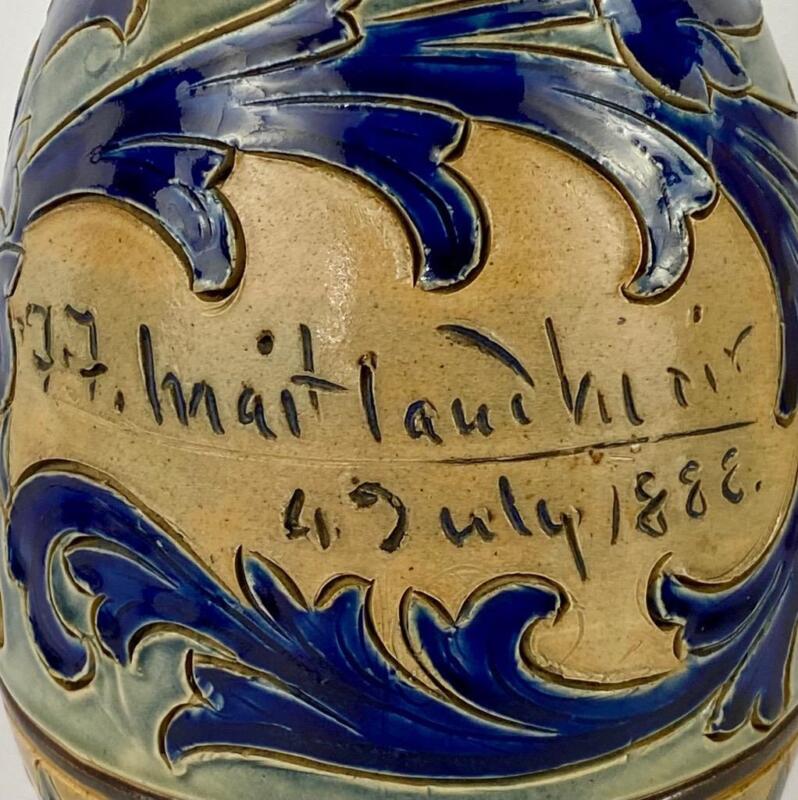 J.J. Maitland Muir
4. July 1888.